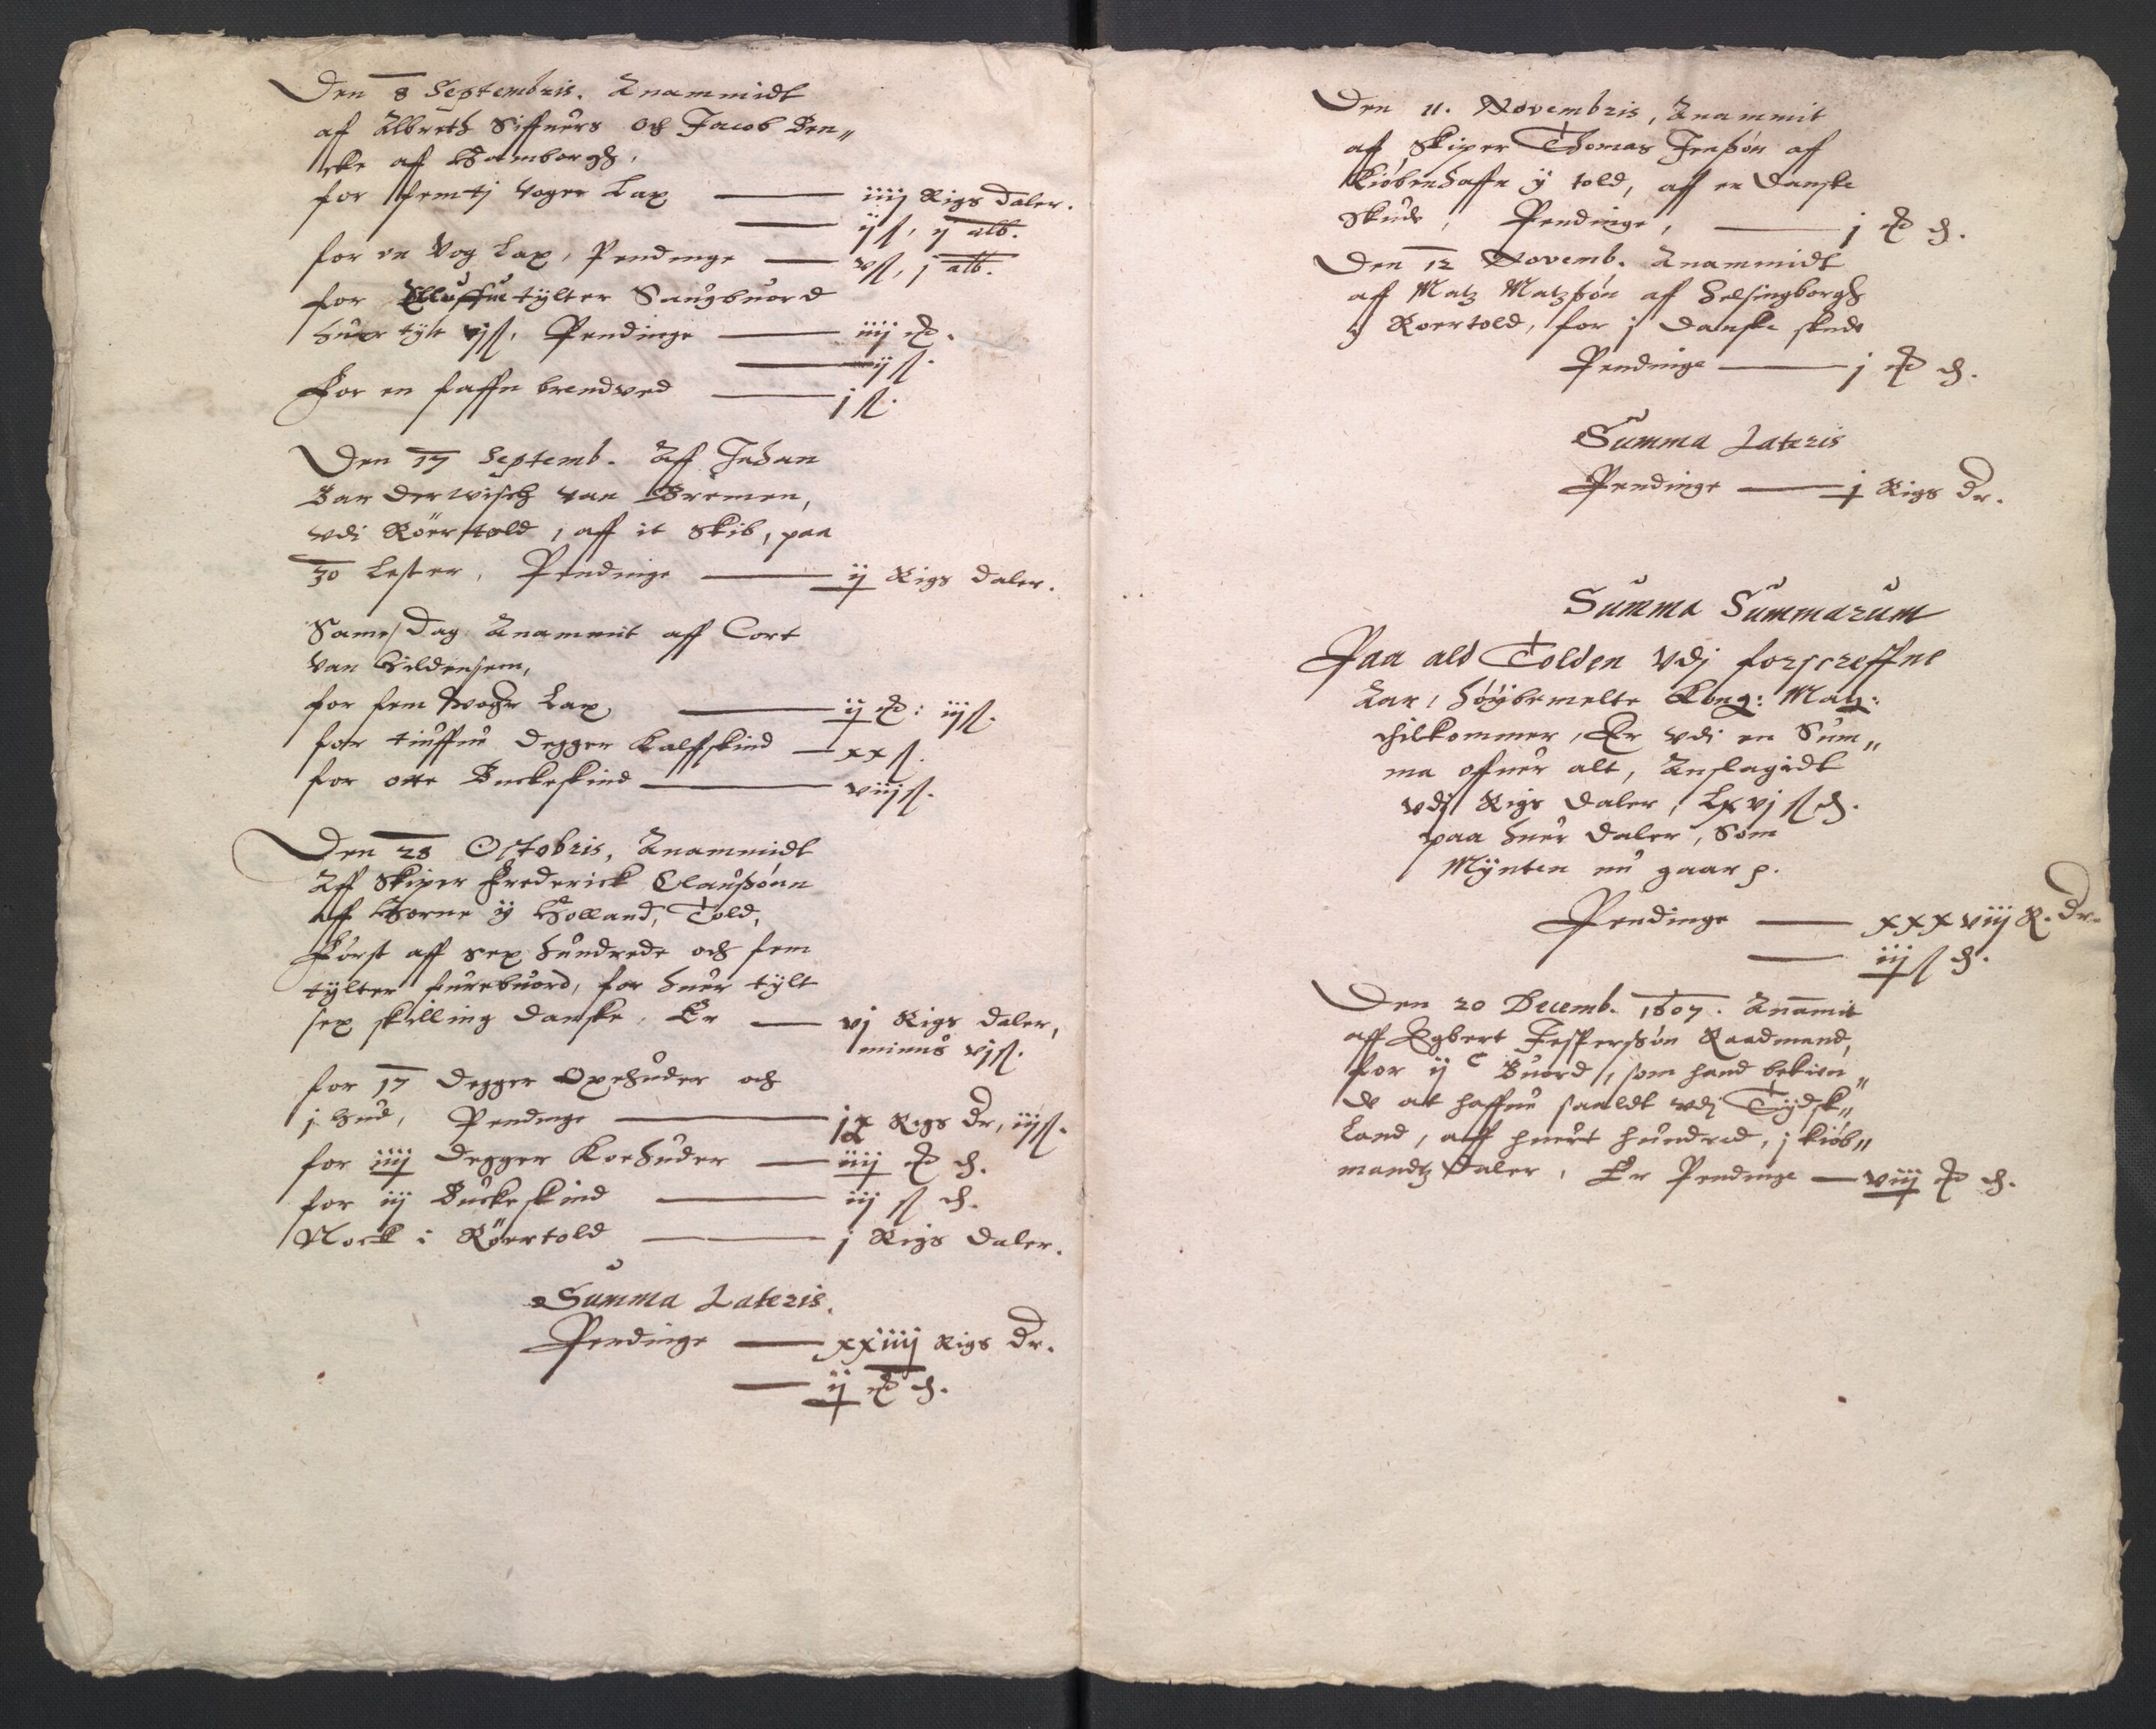 Den 8 Septembris. Anammidt
af Albreth Siffuers och Jacob Ben„
cke aff Hamborgh,
for femtj Voger Lax — iiij Rigs daler.
— ij ß, ij alb.
for en Vog Lax, Pendinge — v ß, j alb.
for Elluffue tylter Saugbuord
huer tylt vj ß, Pendinge — iiij
— ij ß.
For en faffn brendved — j ß.
Den 17 Septemb. Aff Johan
Bar derwisch van Bremen,
vdi Röertold, aff it Skib, paa
30 Lester, Pendinge — ij Rigs daler.
Same Dag Anammit aff Cort
Van Hildensem,
for fem Voger Lax, — ij : iij ß.
for tiuffue Degger Kalfskind — xx ß.
for otte Buckeskind — viij ß.
Den 28 Octobris, Anammidt
Aff Skiper Frederick Claußónn
aff Horne ÿ Holland, Told,
Först aff sex hundrede och fem
tylter furebuord, for huer tylt
sex skilling danske, Er — vj Rigs daler,
minus vj ß.
for 17 Degger Oxehuder och
j hud, Pendinge — ix Rigs Dr, iij ß.
for iiij Degger Koehuder — iiij
for iij Buckeskind — iij ß d.
Nock i Röertold — j Rigs daler.
Summa Lateris.
Pendinge — xxiiij Rigs Dr.
— ij
Den 11. Novembris, Anammit
aff Skiper Thomas Jenßón af
Kiöbenhaffn ÿ told, aff en Danske
Skude, Pendinge, — j
Den 12 Novemb. Anammidt
aff Matz Matzßón af Helsingborgh
ÿ Roertold, for j Danske skude
Pendinge — j
Summa Lateris
Pendinge — j Rigs Dr.
Summa Summarum
Paa ald Tolden Vdj forscreffne
Aar, höÿbemelte Kong: Matz:
thilkommer, Er vdi en Sum„
ma offuer alt, Anslagidt
vdj Rigs daler, Lxvj ß d.
paa huer daler, Som
Mÿnten nu gaar p.
Pendinge — xxxviij R. Dr.
— iij ß d.
Den 20 Decemb. 1607. Anamit
aff Egbert Jesperßón Raadmand,
for ij c Buord, som hand bekien„
de at haffue saaldt vdj Tÿdsk„
land, aff huert hundred, j kiöb„
mandtz daler, Er Pendinge — viij